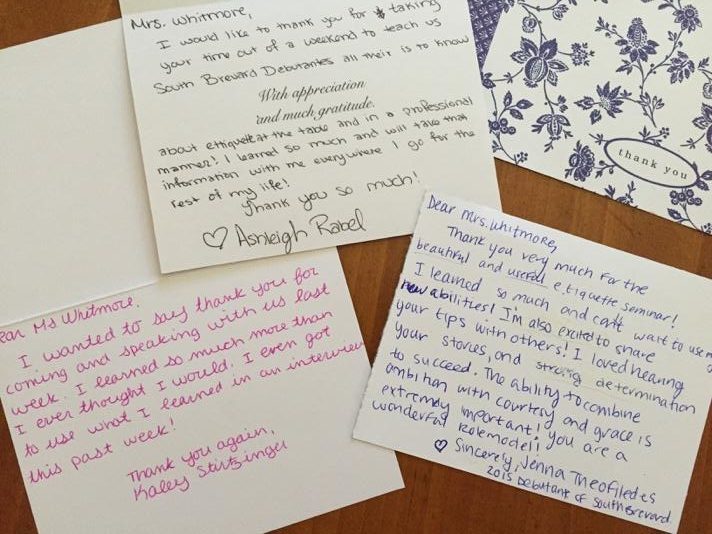 Mrs. Whitmore,
I would like to thank you for taking
your time out of a weekend to teach us
South Brevard Debutantes all their is to know
With appreciation
and much gratitude.
about ettiquette at the table and in a professional
manner! I learned so much and will take that
information with me everywhere I go for the
rest of my life!
Thank you so much!
♡ Ashleigh Rabel
thank you
ear Ms Whitmore.
I wanted to say thank you for
coming and speaking with us last
week. I learned so much more than
I ever thought I would. I even got
to use what I learned in an interview
this past week!
Thank you again,
Kaley Stirtzinger
Dear Mrs. Whitmore,
Thank you very much for the
beautiful and useful etiquette seminar!
I learned so much and can't wait to use my
new abilities! I'm also excited to share
your tips with others! I loved hearing
your stories, and strong determination
to succeed. The ability to combine
ambition with courtesy and grace is
extremely important! You are a
wonderful rolemodel!
♡ Sincerely, Jenna Theofiledes
2015 Debutant of South Brevard